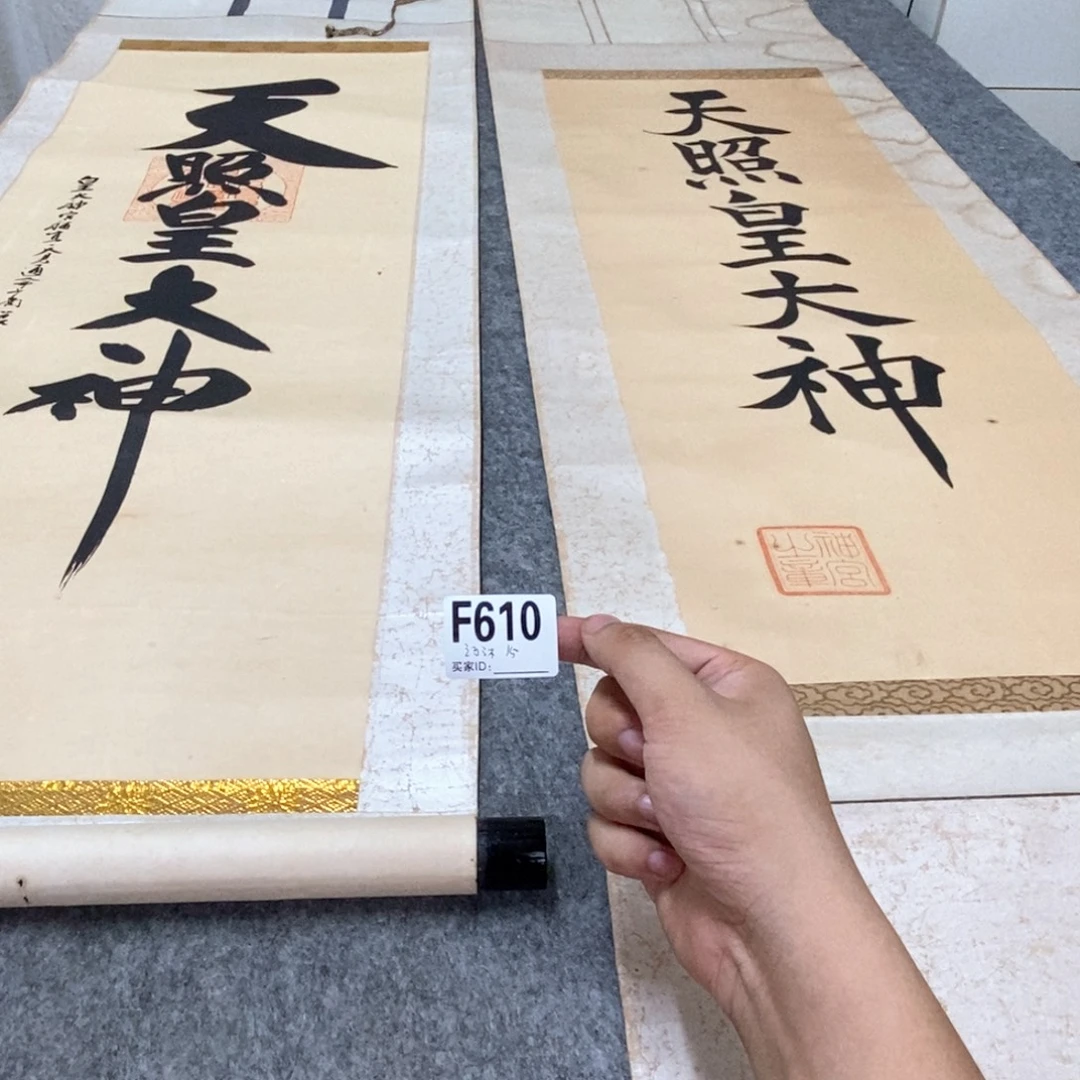 天照皇大神
天照皇大神
神宮之章
F610
买家ID: